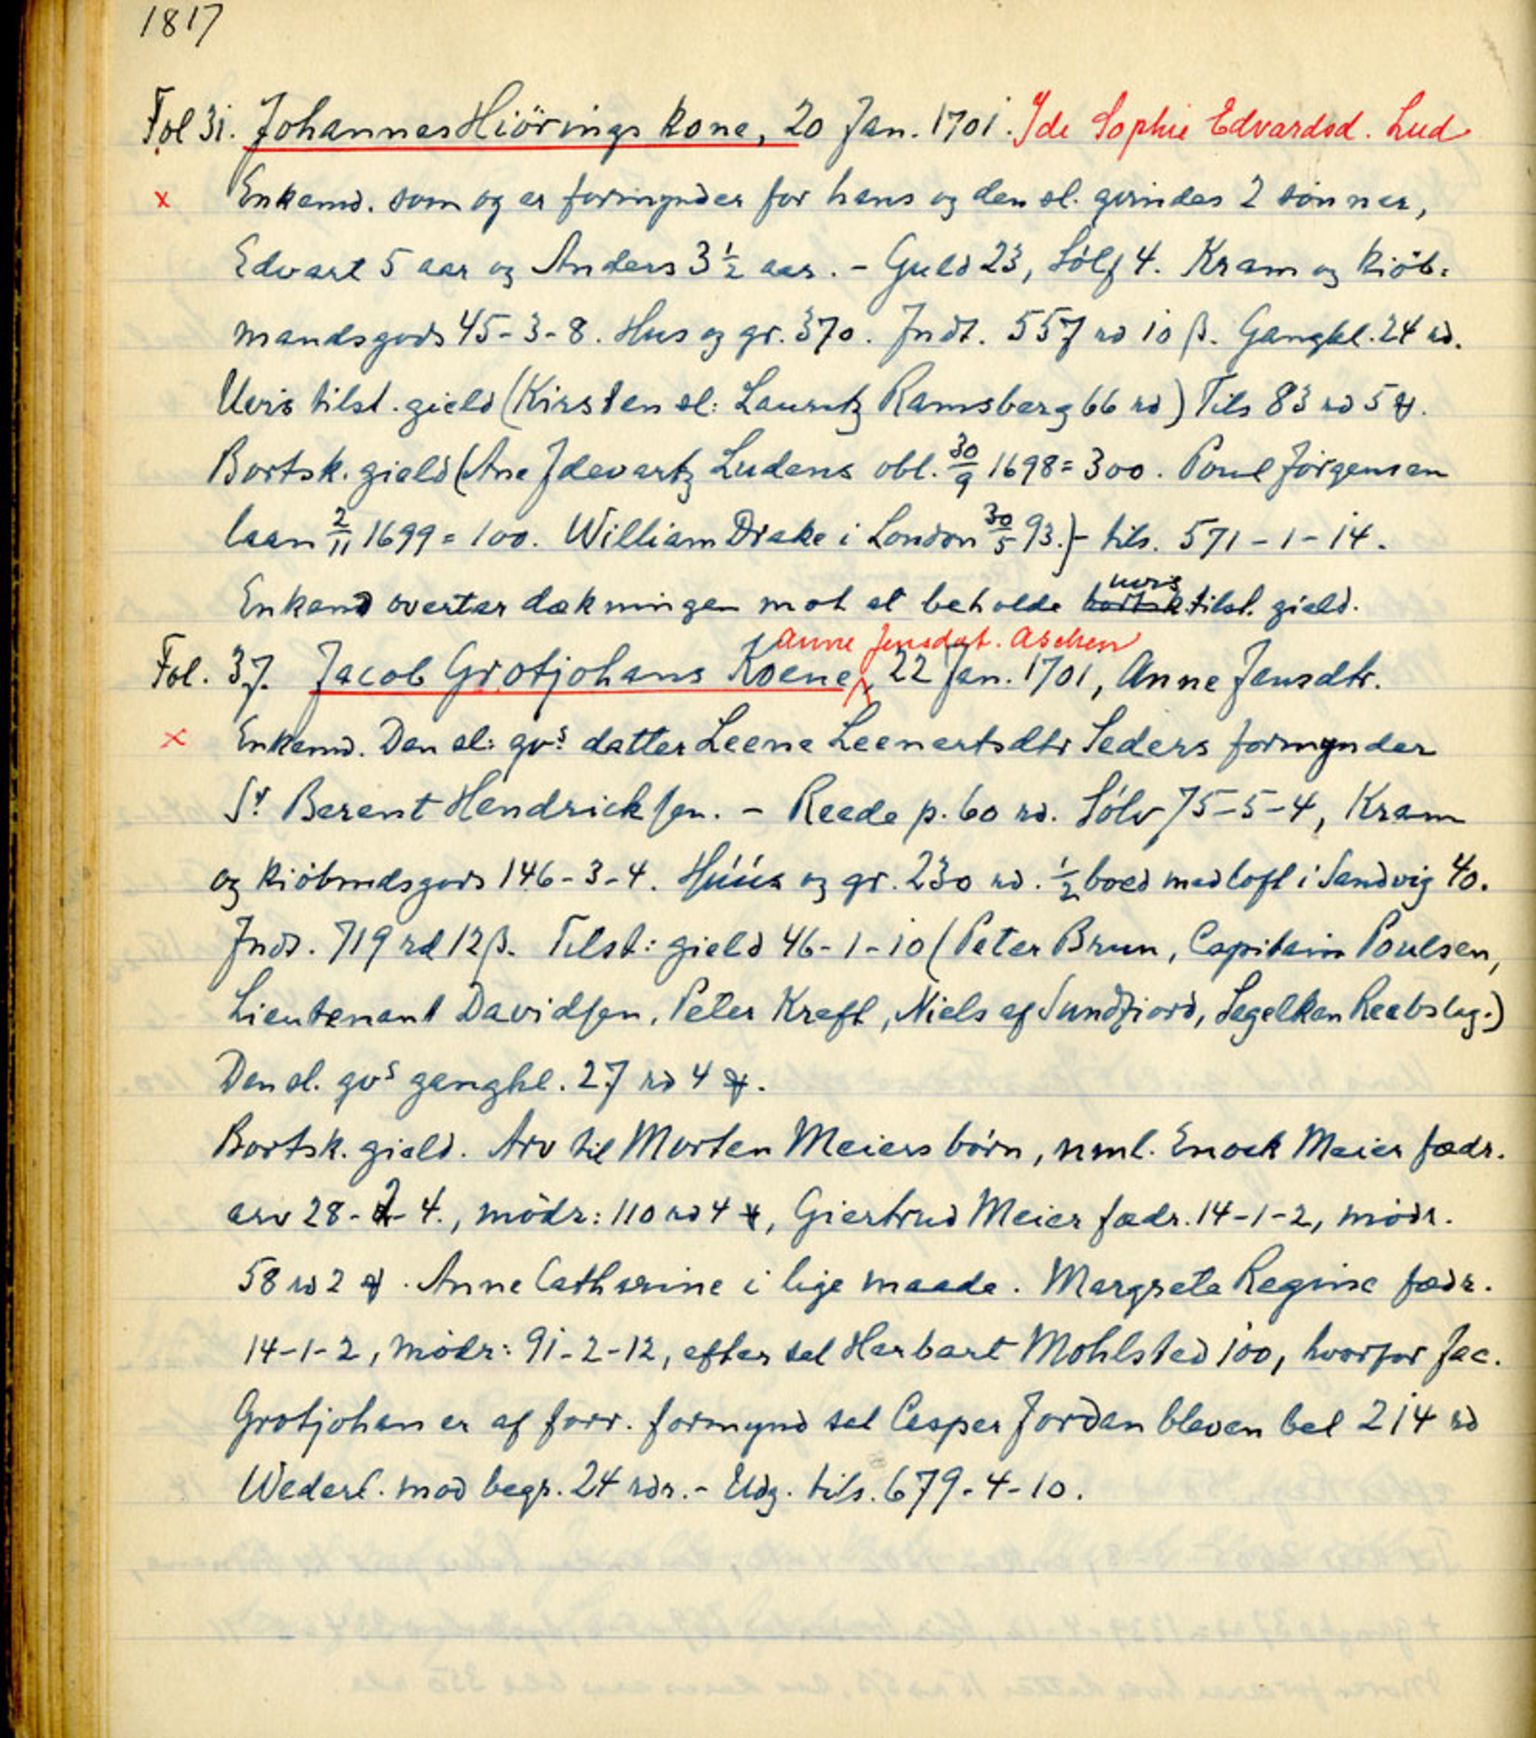 1817
Fol 31. Johannes Hiörings kone, 20 Jan. 1701. Ide Sophie Edvardsd. Lud
x Enkemd. som og er formynder for hans og den sl. qvindes 2 sönner,
Edvart 5 aar og Anders 3 1/2 aar. - Guld 23, Sölf 4. Kram og kiöb=
mandsgods 45-3-8. Hus og gr. 370. Indt. 557 rd 10 β. Gangkl. 24 rd.
Uvis tilst. gield (Kirsten sl: Lauritz Ramsberg 66 rd) Tils 83 rd 5 ꝟ.
Bortsk. gield (Ane Idevartz Ludens obl. 30/9 1698 = 300. Poul Jörgensen
laan 2/11 1699 = 100. William Drake i London 30/5 93.) - tils. 571-1-14.
Enkemd overtar dækningen mot at beholde bortsk uvis tilst. gield.
Anne Jensdat. Aschen
Fol. 37. Jacob Grotjohans Koene, 22 Jan. 1701, Anne Jensdtr.
x Enkemd. Den sl: qvs: datter Leene Leenertsdtr Seders formynder
Sr Berent Hendrichsen. - Reede p. 60 rd. Sölv 75-5-4, Kram
og kiöbmdsgods 146-3-4. Húús og gr. 230 rd. 1/2 boed med loft i Sandvig 40.
Indt. 719 rd 12 β. Tilst: gield 46-1-10 (Peter Brun, Capitain Poulsen,
Lieutenant Davidsen, Peter Kreft, Niels af Sundfiord, Segelken Reebslag.)
Den sl. qvs gangkl. 27 rd 4 ꝟ.
Bortsk. gield. Arv til Morten Meiers börn, nml. Enock Meier fædr.
arv 28-2-4., mödr: 110 rd 4 ꝟ, Giertrud Meier fædr. 14-1-2, mödr.
58 rd 2 ꝟ. Anne Cathrine i lige maade. Margrete Regine fædr.
14-1-2, mödr: 91-2-12, efter sal Herbart Mohlsted 100, hvorfor Jac.
Grotjohan er af forr. formynd sal Casper Jordan bleven bet 214 rd
Wederl. mod begr. 24 rdr. - Udg. tils. 679-4-10.